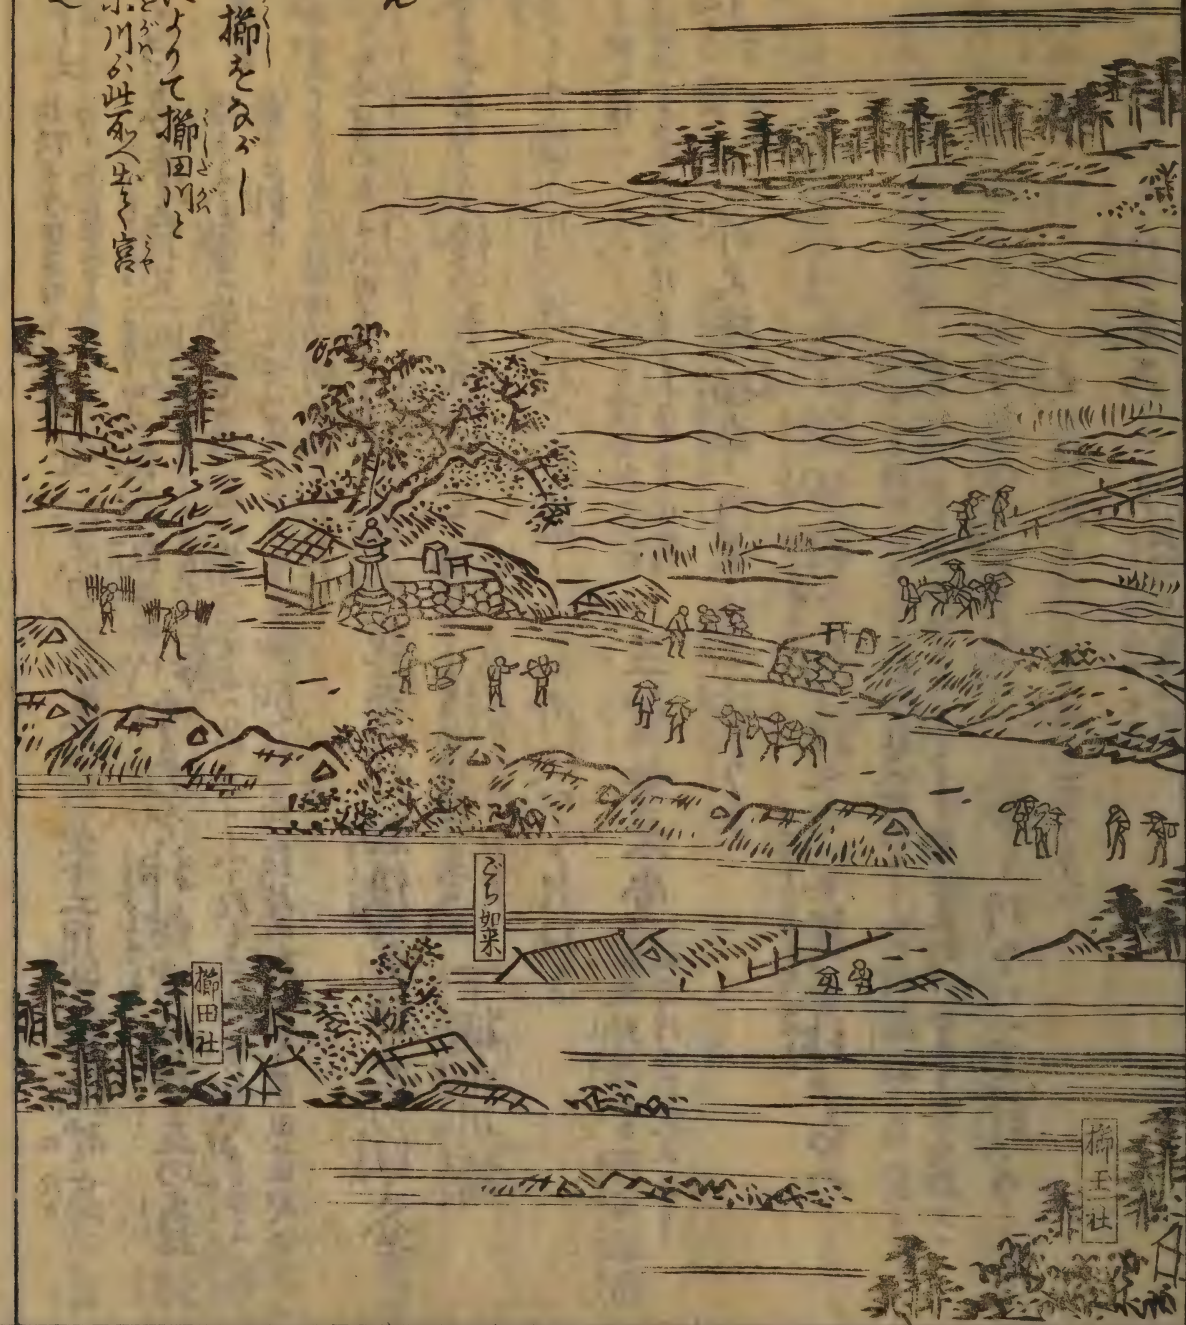 櫛をながし
よりて櫛田川と
此所へ出て宮
ごち如来
櫛田社
櫛王社